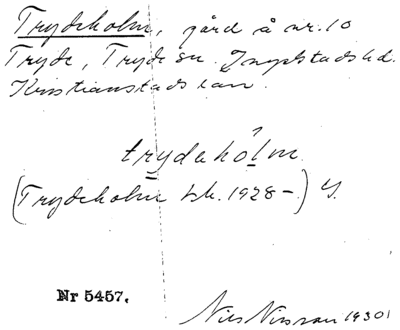 Trydeholm, gård å nr. 10
Tryde, Tryde sn. Ingelstads hd.
Kristianstads län.
trydahólm
(Trydeholm bk. 1928–) Y.
Nr 5457.
Nils Nilsson 1930